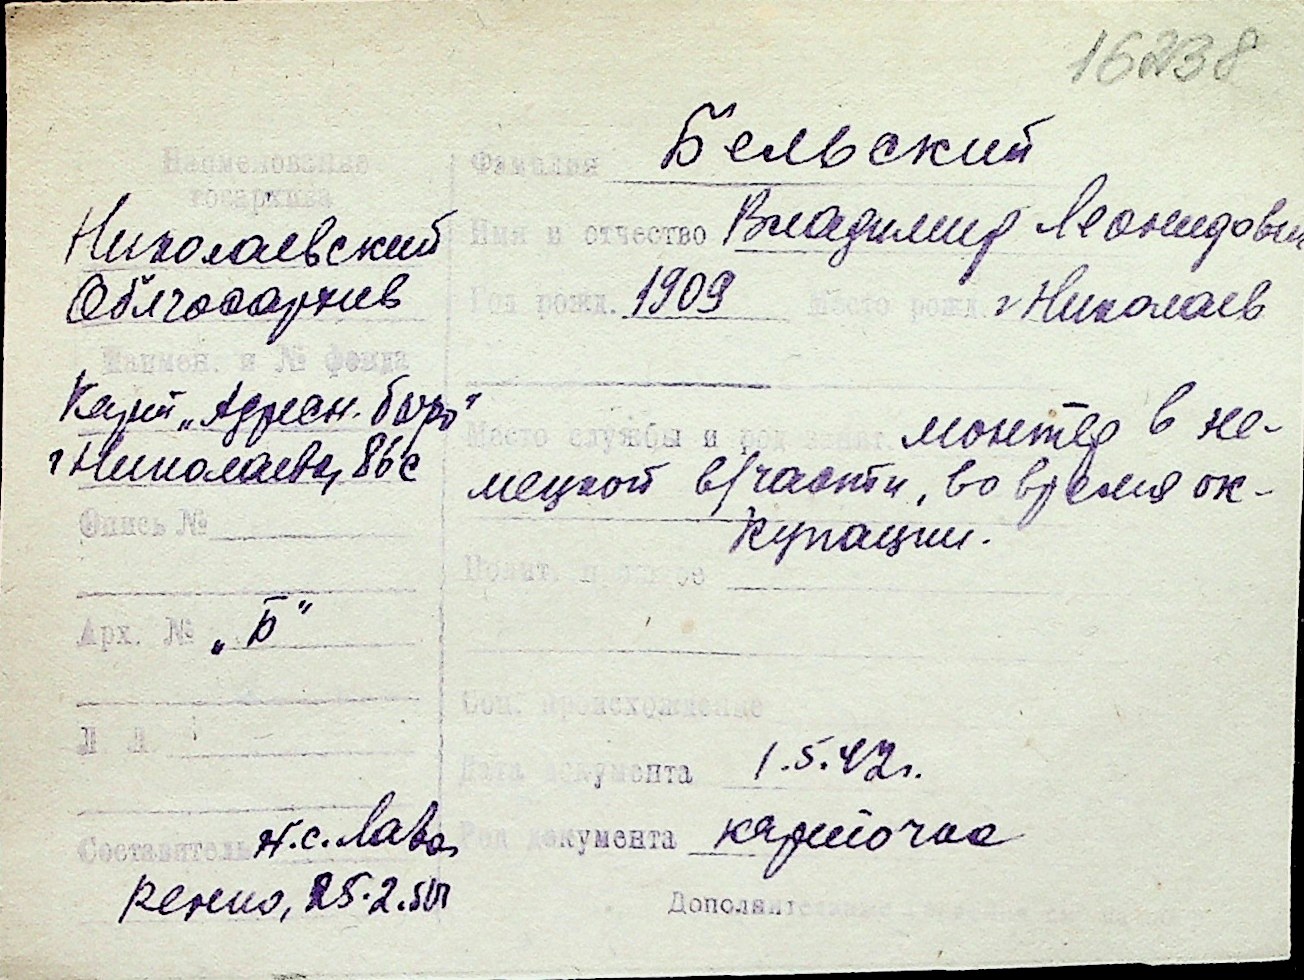 16238
Наименование
госархива
Николаевский
Облгосархив
Наимен. и № фонда
"Адресн. бюро"
г Николаева, 86с
Опись №
Арх. № „Б"
Составитель н.с. Лавр
Фамилия Бельский
Имя и отчество Владимир Леонидович
Год рожд. 1909 Место рожд. г Николаев
Место службы и род занят. монтер в не-
мецкой в/части, во время ок-
купации.
Полит.
Соц. происхождение
Дата документа 1.5.42г.
Род документа карточка